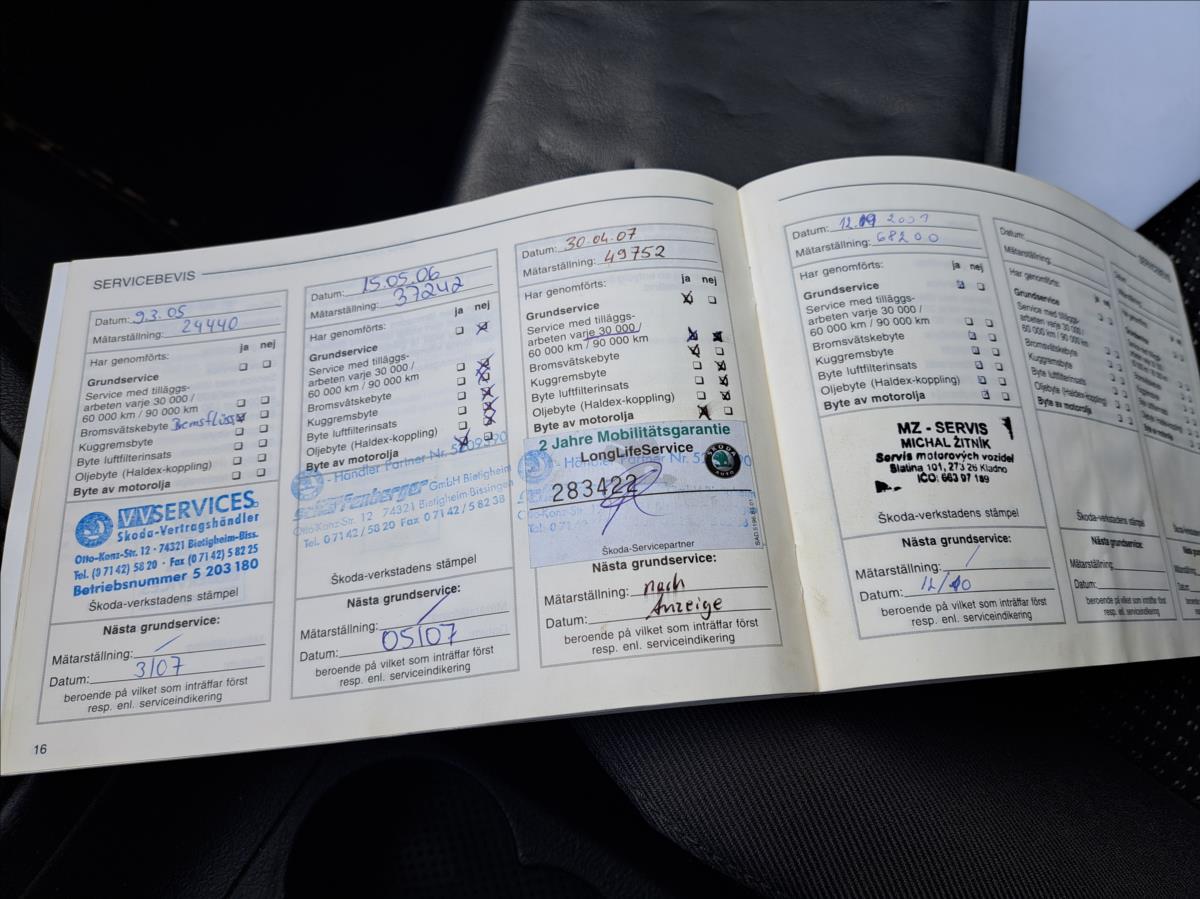 SERVICEBEVIS
Datum: 9.3.05
Mätarställning: 24440
Har genomförts: ja nej
Grundservice
Service med tilläggs-
arbeten varje 30 000/
60 000 km / 90 000 km
Bromsvätskebyte
Kuggremsbyte
Byte luftfilterinsats
Oljebyte (Haldex-koppling)
Byte av motorolja
VVSERVICES
Skoda-Vertragshändler
Otto-Konz-Str. 12 · 74321 Bietigheim-Biss.
Tel. (0 71 42) 58 20 · Fax (0 71 42) 5 82 25
Betriebsnummer 5 203 180
Škoda-verkstadens stämpel
Nästa grundservice:
Mätarställning:
Datum: 3/07
beroende på vilket som inträffar först
resp. enl. serviceindikering
16
Datum: 15.05.06
Mätarställning: 37242
Har genomförts: ja nej
Grundservice
Service med tilläggs-
arbeten varje 30 000/
60 000 km / 90 000 km
Bromsvätskebyte
Kuggremsbyte
Byte luftfilterinsats
Oljebyte (Haldex-koppling)
Byte av motorolja
- Händler Partner Nr.
GmbH Bietigheim
Otto-Konz-Str. 12 74321 Bietigheim-Bissingen
Tel. 0 71 42 / 58 20 Fax 0 71 42 / 5 82 38
Škoda-verkstadens stämpel
Nästa grundservice:
Mätarställning:
Datum: 05/07
beroende på vilket som inträffar först
resp. enl. serviceindikering
Datum: 30.04.07
Mätarställning: 49752
Har genomförts: ja nej
Grundservice
Service med tilläggs-
arbeten varje 30 000/
60 000 km / 90 000 km
Bromsvätskebyte
Kuggremsbyte
Byte luftfilterinsats
Oljebyte (Haldex-koppling)
Byte av motorolja
2 Jahre Mobilitätsgarantie
LongLifeService
SKODA
AUTO
283422
Škoda-Servicepartner
Nästa grundservice:
Mätarställning: nach
Datum: Anzeige
beroende på vilket som inträffar först
resp. enl. serviceindikering
Datum: 12
Mätarställning: 68200
Har genomförts: ja nej
Grundservice
Service med tilläggs-
arbeten varje 30 000/
60 000 km / 90 000 km
Bromsvätskebyte
Kuggremsbyte
Byte luftfilterinsats
Oljebyte (Haldex-koppling)
Byte av motorolja
MZ - SERVIS
MICHAL ŽITNÍK
Servis motorových vozidel
Slatina 101, 273 26 Kladno
IČO: 663 97 189
Škoda-verkstadens stämpel
Nästa grundservice:
Mätarställning:
Datum: 12/10
beroende på vilket som inträffar först
resp. enl. serviceindikering
Datum:
Mätarställning:
Har genomförts: ja nej
Grundservice
Service med tilläggs-
arbeten varje 30 000/
60 000 km / 90 000 km
Bromsvätskebyte
Kuggremsbyte
Byte luftfilterinsats
Oljebyte (Haldex-koppling)
Byte av motorolja
Škoda-verkstadens stämpel
Nästa grundservice:
Mätarställning:
Datum:
beroende på vilket som inträffar först
resp. enl. serviceindikering